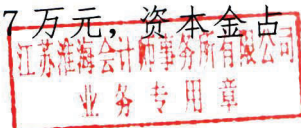 7万元，资本金占
江苏淮海会计师事务所有限公司
业务专用章